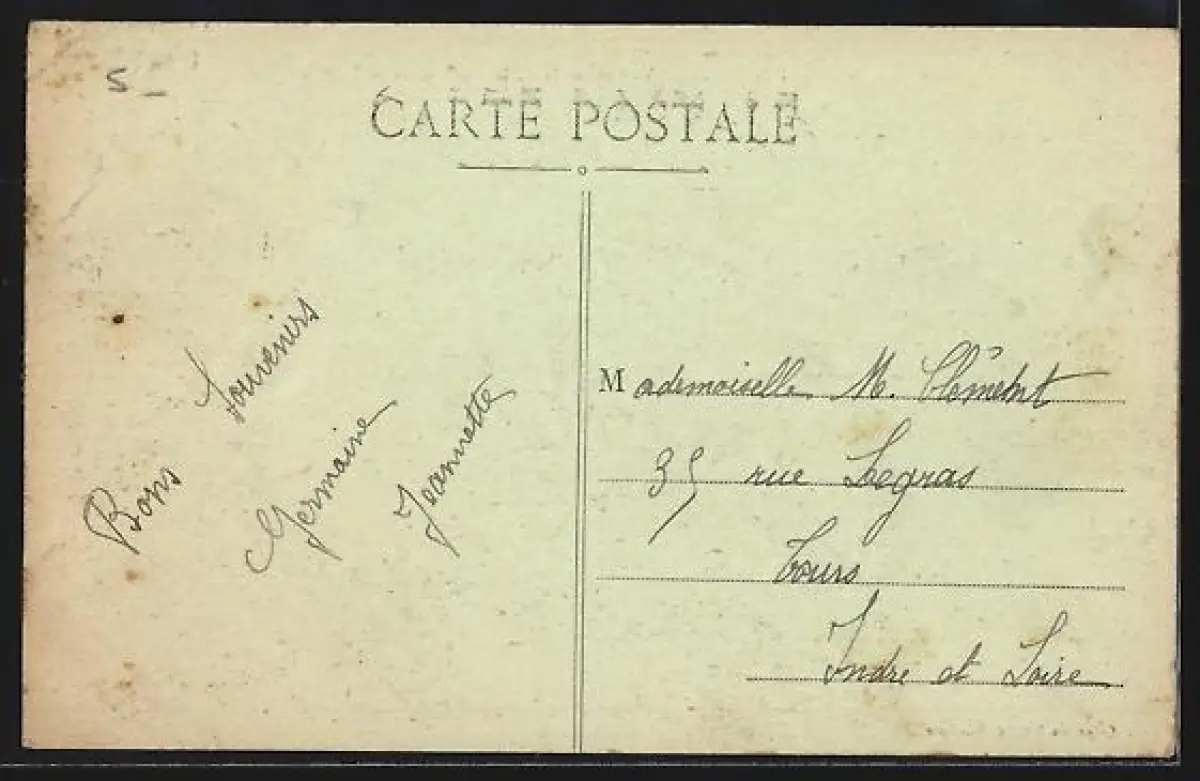 5
CARTE POSTALE
Bons Souvenirs
Germaine
Jeannette
Mademoiselle M. Clément
35 rue Legras
Tours
Indre et Loire